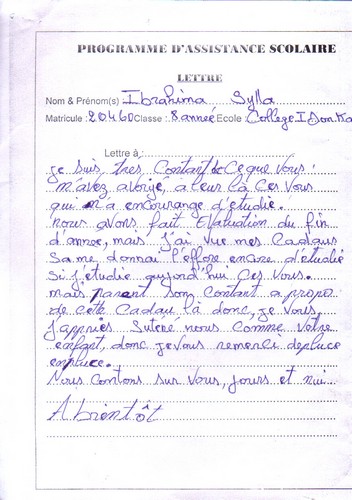 PROGRAMME D'ASSISTANCE SCOLAIRE
LETTRE
Nom & Prénom(s) Ibrahima Sylla
Matricule : 20460 Classe : 8 année Ecole : College I Donka
Lettre à :
je suis tres Contant de Ce que vous
m'avez avoije, a leur là Ces vous
qui m'a encourange d'étudie.
nous avons fait Evaluation du fin
d'annee, mais j'ai vue mes Cadaus
Sa me donnai l'effore encore d'étudie
Si j'étudie aujord'hui Ces vous.
mais parent Son Contant a propos
de cette Cadau là donc, je vous
j'appries Sutene nous Comme votre
enfant, donc je vous remerci depluce
enpluce.
Nous Contons sur vous, jours et nui
A bientôt